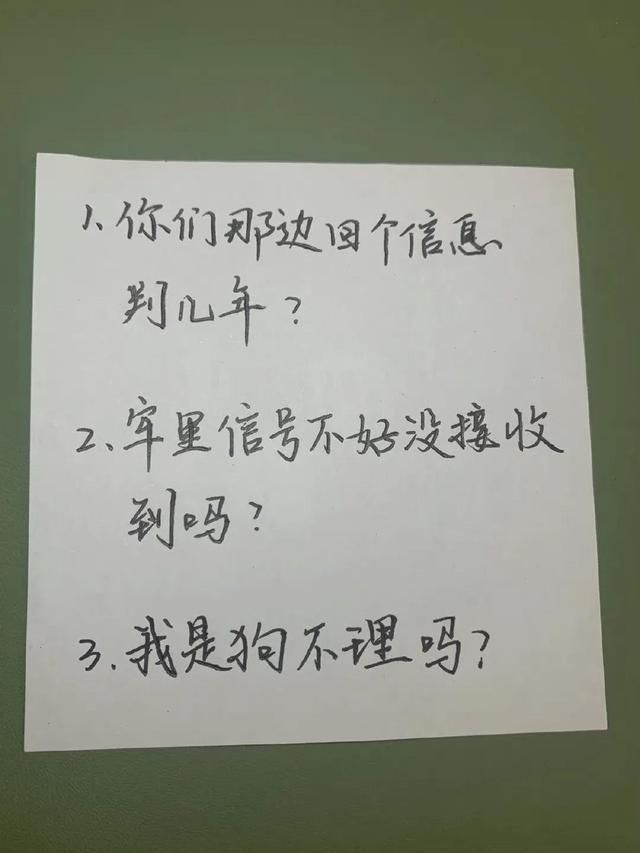 1、你们那边回个信息
判几年？
2、牢里信号不好没接收
到吗？
3.我是狗不理吗？